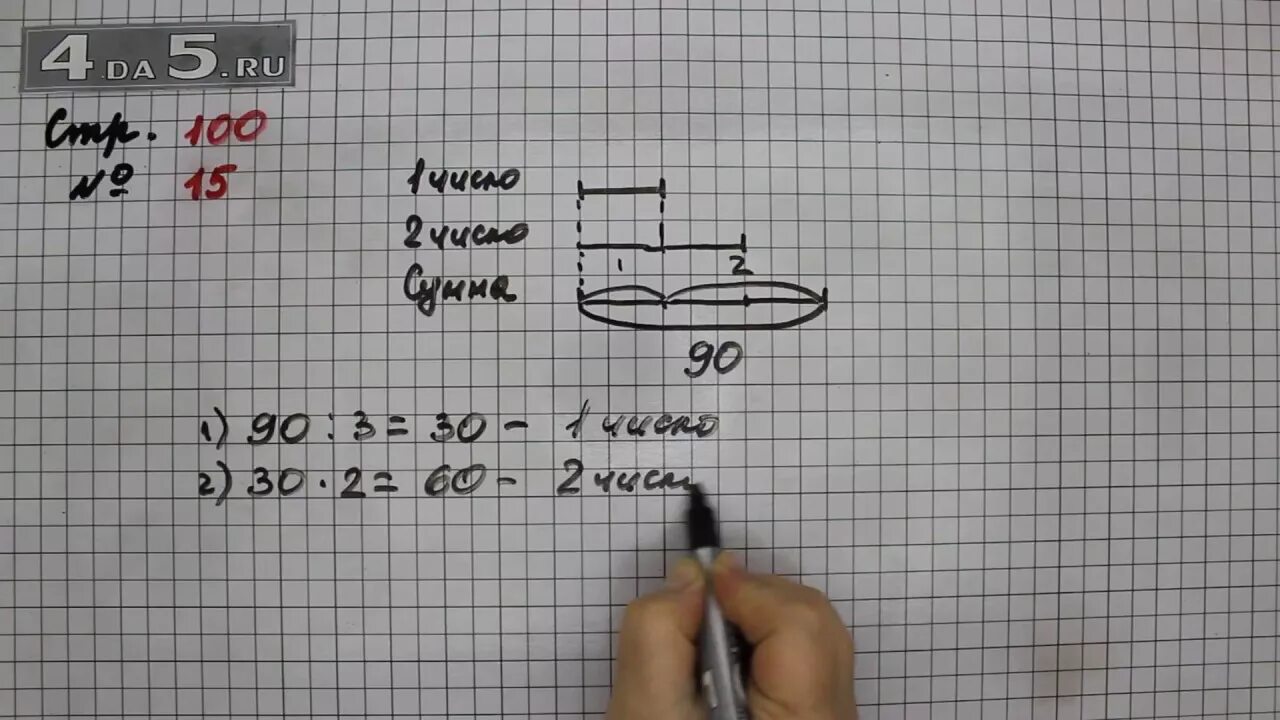 4DA5.RU
Стр. 100
№ 15
1 число
2 число
1 2
Сумма
90
1) 90 : 3 = 30 - 1 число
2) 30 · 2 = 60 - 2 числ